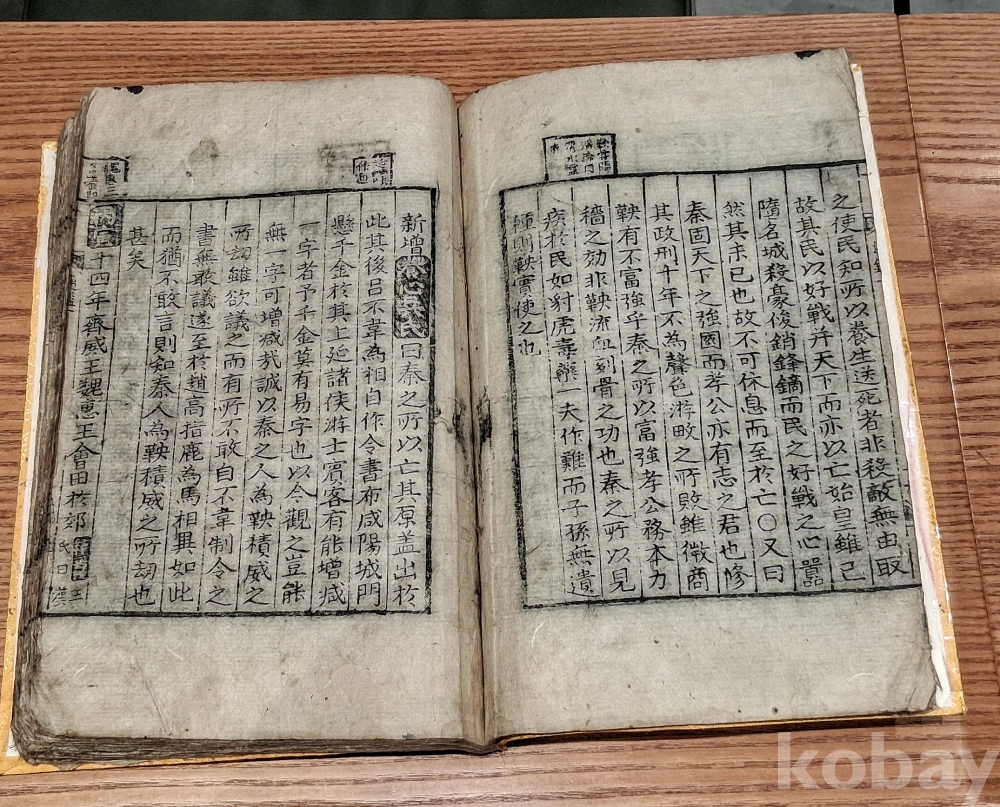 之使民知所以養生送死者非殺敵無由取
故其民以好戰并天下而亦以亡始皇雖已
隳名城殺豪俊銷鋒鏑而民之好戰之心囂
然其未已也故不可休息而至於亡〇又曰
秦固天下之強國而孝公亦有志之君也修
其政刑十年不為聲色游畋之所敗雖微商
鞅有不富強乎秦之所以富強孝公務本力
穡之効非鞅流血刻骨之功也秦之所以見
疾於民如豺虎毒藥 夫作難而子孫無遺
種則鞅實使之也
新增 氏曰秦之所以亡其原盖出於
此其後呂不韋為相自作令書布咸陽城門
懸千金於其上延諸侯游士賓客有能增减
一字者予千金莫有易字也以今觀之豈能
無一字可增减㢤誠以秦之人為鞅積威之
所刼雖欲議之而有所不敢自不韋制令之
書無敢議遂至於趙高指鹿為馬相異如此
而猶不敢言則知秦人為鞅積威之所刼也
甚矣
十四年齊威王魏惠王會田於郊
kobay